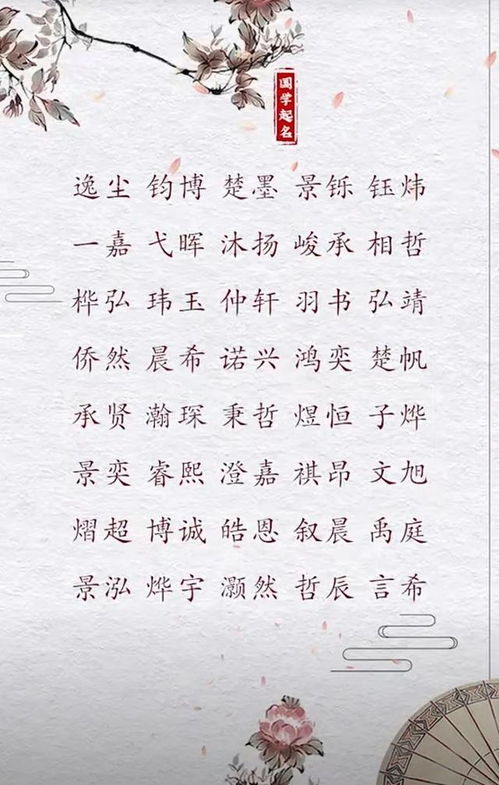 国学起名
逸尘 钧博 楚墨 景铄 钰炜
一嘉 弋晖 沐扬 峻承 相哲
桦弘 玮玉 仲轩 羽书 弘靖
侨然 晨希 诺兴 鸿奕 楚帆
承贤 瀚琛 秉哲 煜恒 子烨
景奕 睿熙 澄嘉 祺昂 文旭
熠超 博诚 皓恩 叙晨 禹庭
景泓 烨宇 灏然 哲辰 言希